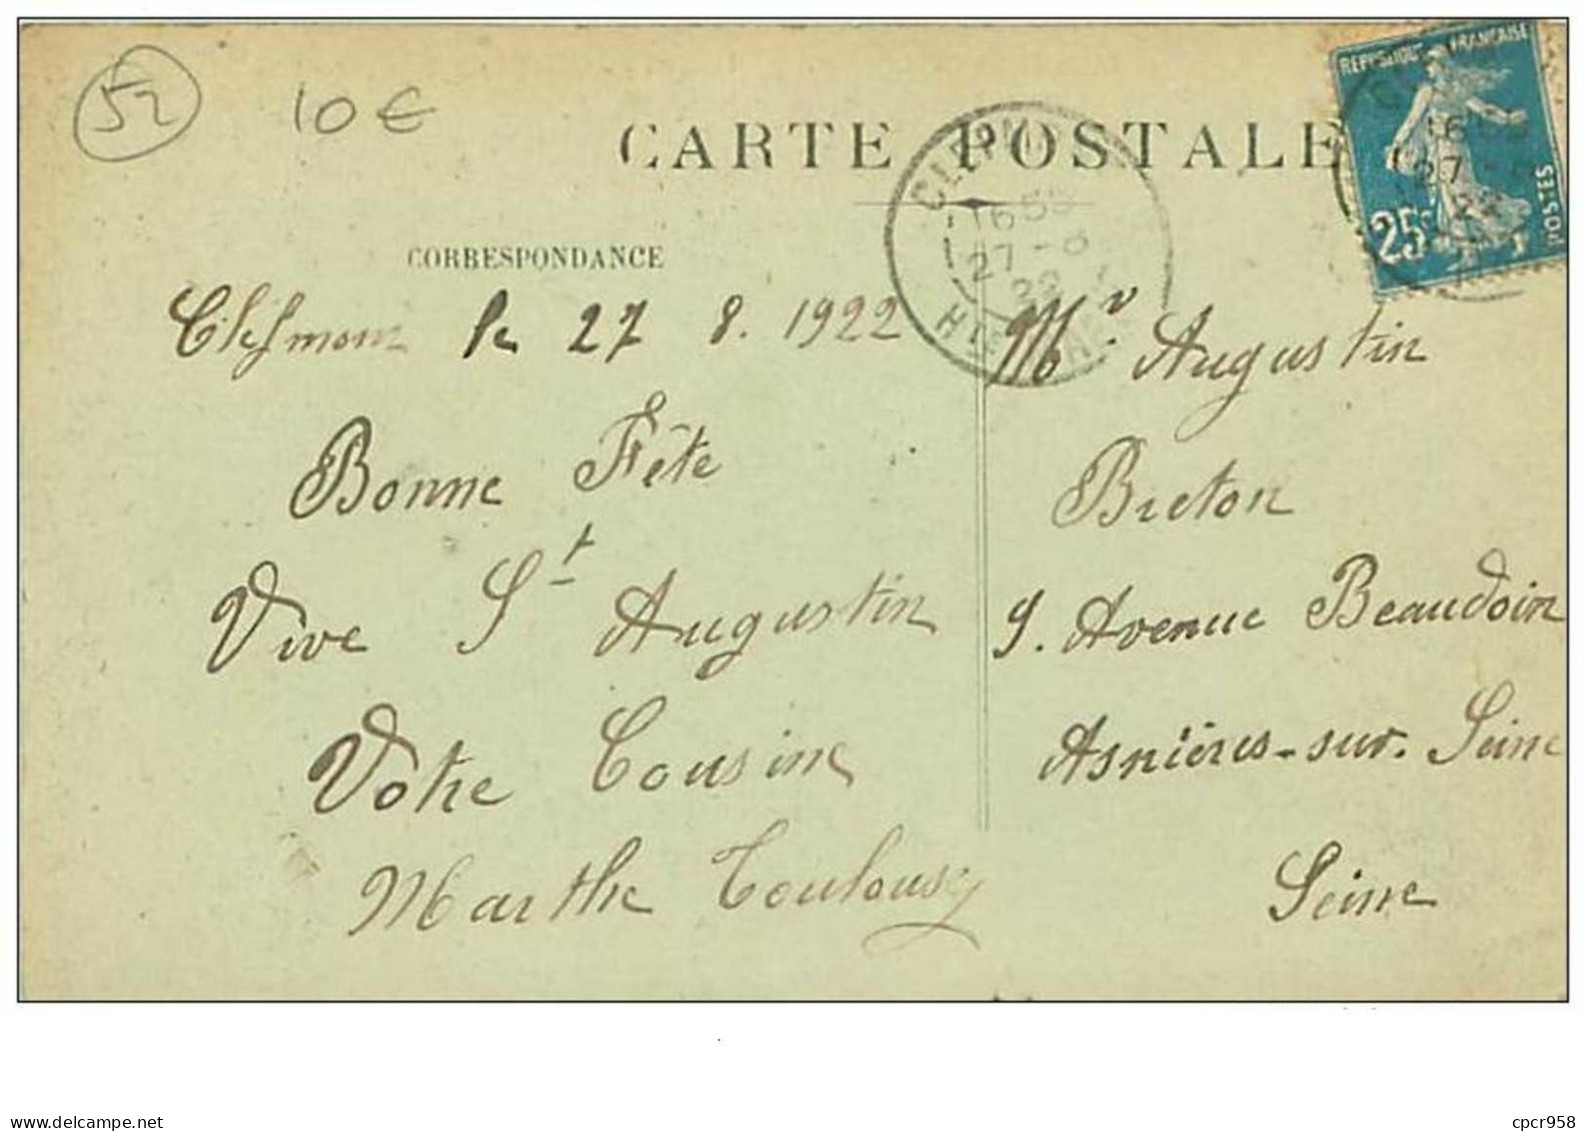 52
10€
CARTE POSTALE
CORRESPONDANCE
REPUBLIQUE FRANÇAISE
25c
POSTES
27-8
22
Clefmont le 27 8. 1922
Bonne Fête
Vive St Augustin
Votre Cousine
Marthe Toulousy
Mr. Augustin
Breton
9. Avenue Beaudoin
Asnières-sur-Seine
Seine
www.delcampe.net
cpcr958